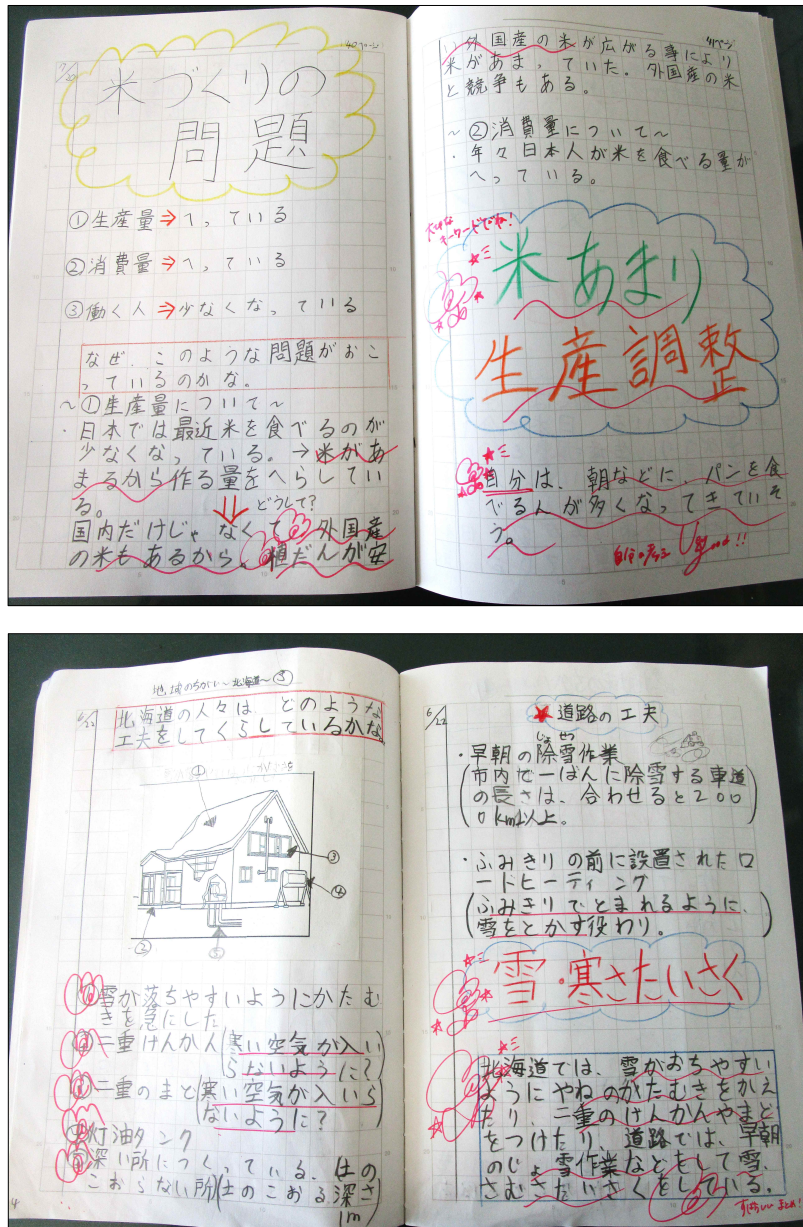 40ページ
7/20
米づくりの
問題
①生産量⇒へっている
②消費量⇒へっている
③働く人⇒少なくなっている
なぜ、このような問題がおこ
っているのかな。
～①生産量について～
・日本では最近米を食べるのが
少なくなっている。→米があ
まるから作る量をへらしてい
る。
どうして?
国内だけじゃなくて、外国産
の米もあるから。値だんが安
41ページ
い外国産の米が広がる事により
米があまっていた。外国産の米
と競争もある。
～②消費量について～
・年々日本人が米を食べる量が
へっている。
大切な
キーワードでね!
米あまり
生産調整
自分は、朝などに、パンを食
べる人が多くなってきていそ
う。
自分の考え
good!!
地域のちがい～北海道～③
6/22
北海道の人々は、どのような
工夫をしてくらしているかな。
①
③
④
②
⑤
①雪が落ちやすいようにかたむ
きを急にした
②二重げんかん(寒い空気が入い
らないように?)
③二重のまど(寒い空気が入いら
ないように?)
④灯油タンク
⑤深い所につくっている。(土の
こおらない所)(土のこおる深さ
1m)
6/22
★道路の工夫
じょせつ
・早朝の除雪作業
(市内で一ばんに除雪する車道
の長さは、合わせると200
0km以上。)
・ふみきりの前に設置されたロ
ードヒーティング
(ふみきりでとまれるように、
雪をとかす役わり。)
雪・寒さたいさく
北海道では、雪がおちやすい
ようにやねのかたむきをかえ
たり、二重のげんかんやまど
をつけたり、道路では、早朝
のじょ雪作業などをして雪、
さむさたいさくをしている。
すばらしいまとめ!